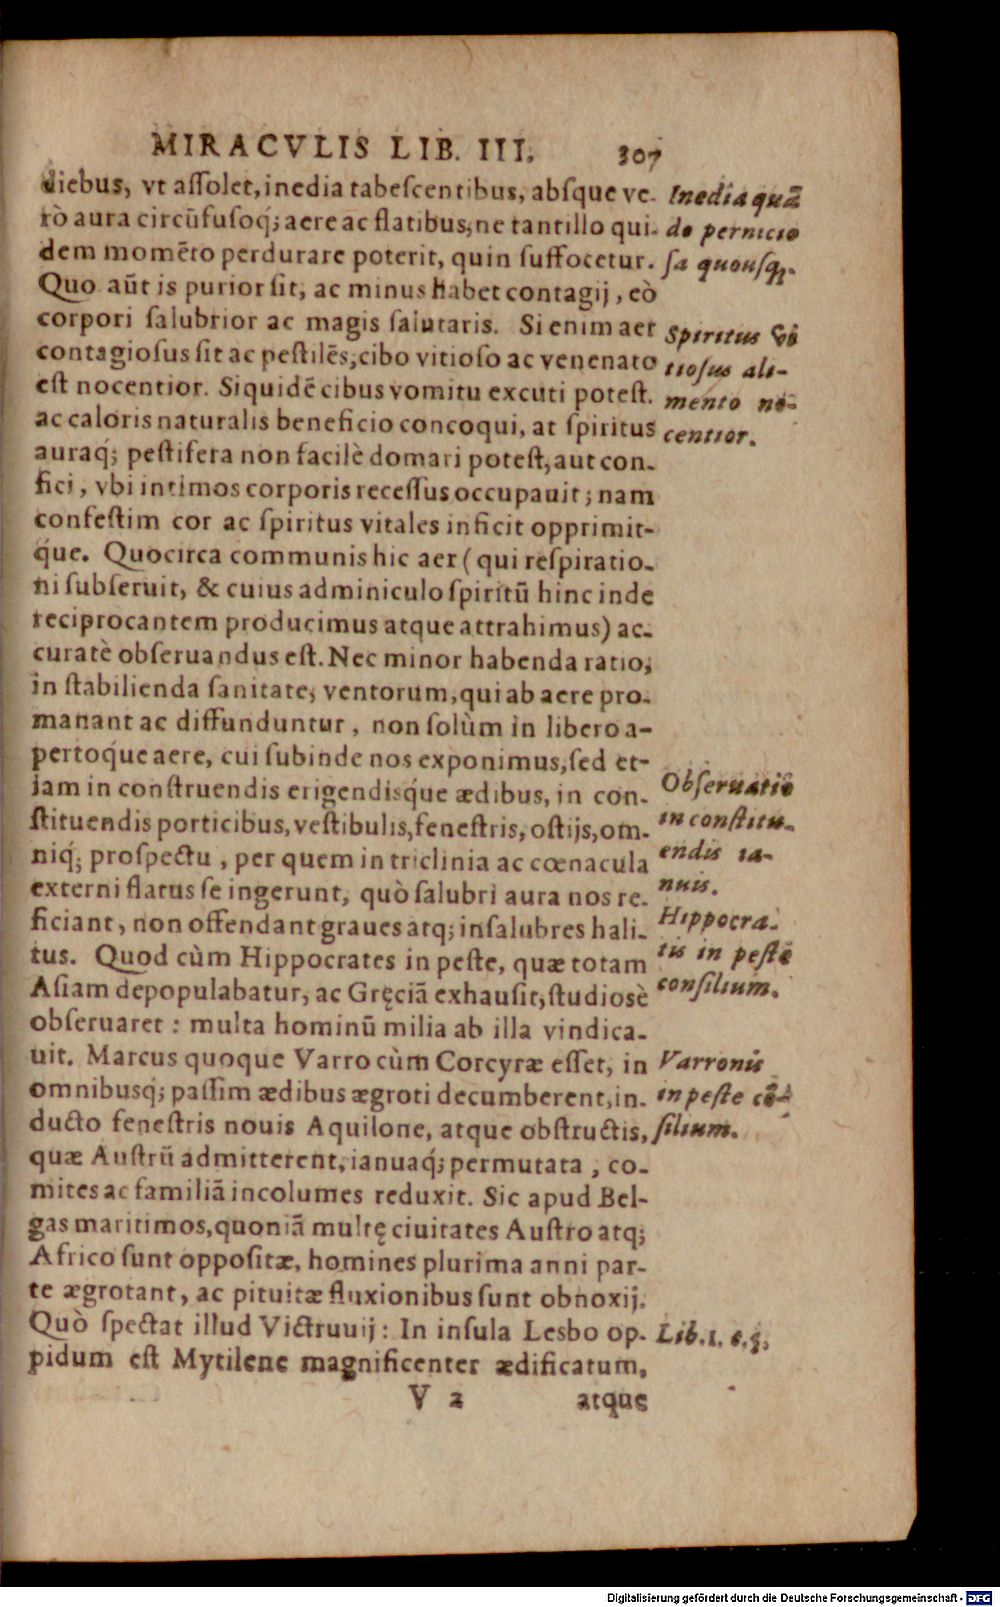 MIRACVLIS LIB. III. 307
diebus, vt aſſolet, inedia tabeſcentibus, abſque ve-
rò aura circūfuſoq́; aere ac flatibus, ne tantillo qui-
dem momẽto perdurare poterit, quin ſuffocetur.
Quo aūt is purior ſit, ac minus habet contagij, eò
corpori ſalubrior ac magis ſalutaris. Si enim aer
contagioſus ſit ac peſtilēs, cibo vitioſo ac venenato
eſt nocentior. Siquidē cibus vomitu excuti poteſt.
ac caloris naturalis beneficio concoqui, at ſpiritus
auraq́; peſtifera non facilè domari poteſt, aut con-
fici, vbi intimos corporis receſſus occupauit; nam
confeſtim cor ac ſpiritus vitales inficit opprimit-
q́ue. Quocirca communis hic aer (qui reſpiratio-
ni ſubſeruit, & cuius adminiculo ſpiritū hinc inde
reciprocantem producimus atque attrahimus) ac-
curatè obſeruandus eſt. Nec minor habenda ratio,
in ſtabilienda ſanitate, ventorum, qui ab aere pro-
manant ac diffunduntur, non ſolùm in libero a-
pertoq́ue aere, cui ſubinde nos exponimus, ſed et-
iam in conſtruendis erigendisq́ue ædibus, in con-
ſtituendis porticibus, veſtibulis, feneſtris, oſtijs, om-
niq́; proſpectu, per quem in triclinia ac cœnacula
externi flatus ſe ingerunt, quò ſalubri aura nos re-
ficiant, non offendant graues atq; inſalubres hali-
tus. Quod cùm Hippocrates in peſte, quæ totam
Aſiam depopulabatur, ac Gręciā exhauſit, ſtudioſè
obſeruaret: multa hominū milia ab illa vindica-
uit. Marcus quoque Varro cùm Corcyræ eſſet, in
omnibusq́; paſſim ædibus ægroti decumberent, in-
ducto feneſtris nouis Aquilone, atque obſtructis,
quæ Auſtrū admitterent, ianuaq́; permutata, co-
mites ac familiā incolumes reduxit. Sic apud Bel-
gas maritimos, quoniā multę ciuitates Auſtro atq;
Africo ſunt oppoſitæ, homines plurima anni par-
te ægrotant, ac pituitæ fluxionibus ſunt obnoxij.
Quò ſpectat illud Victruuij: In inſula Lesbo op-
pidum eſt Mytilene magnificenter ædificatum,
V 2 atque
Inedia quā
do pernicio
ſa quouſq;.
Spiritus vi
tioſus ali-
mento no-
centior.
Obſeruatio
in conſtitu-
endis ia-
nuis.
Hippocra-
tis in peſte
conſilium.
Varronis
in peſte cō-
ſilium.
Lib. 1. c.
Digitalisierung gefördert durch die Deutsche Forschungsgemeinschaft - DFG